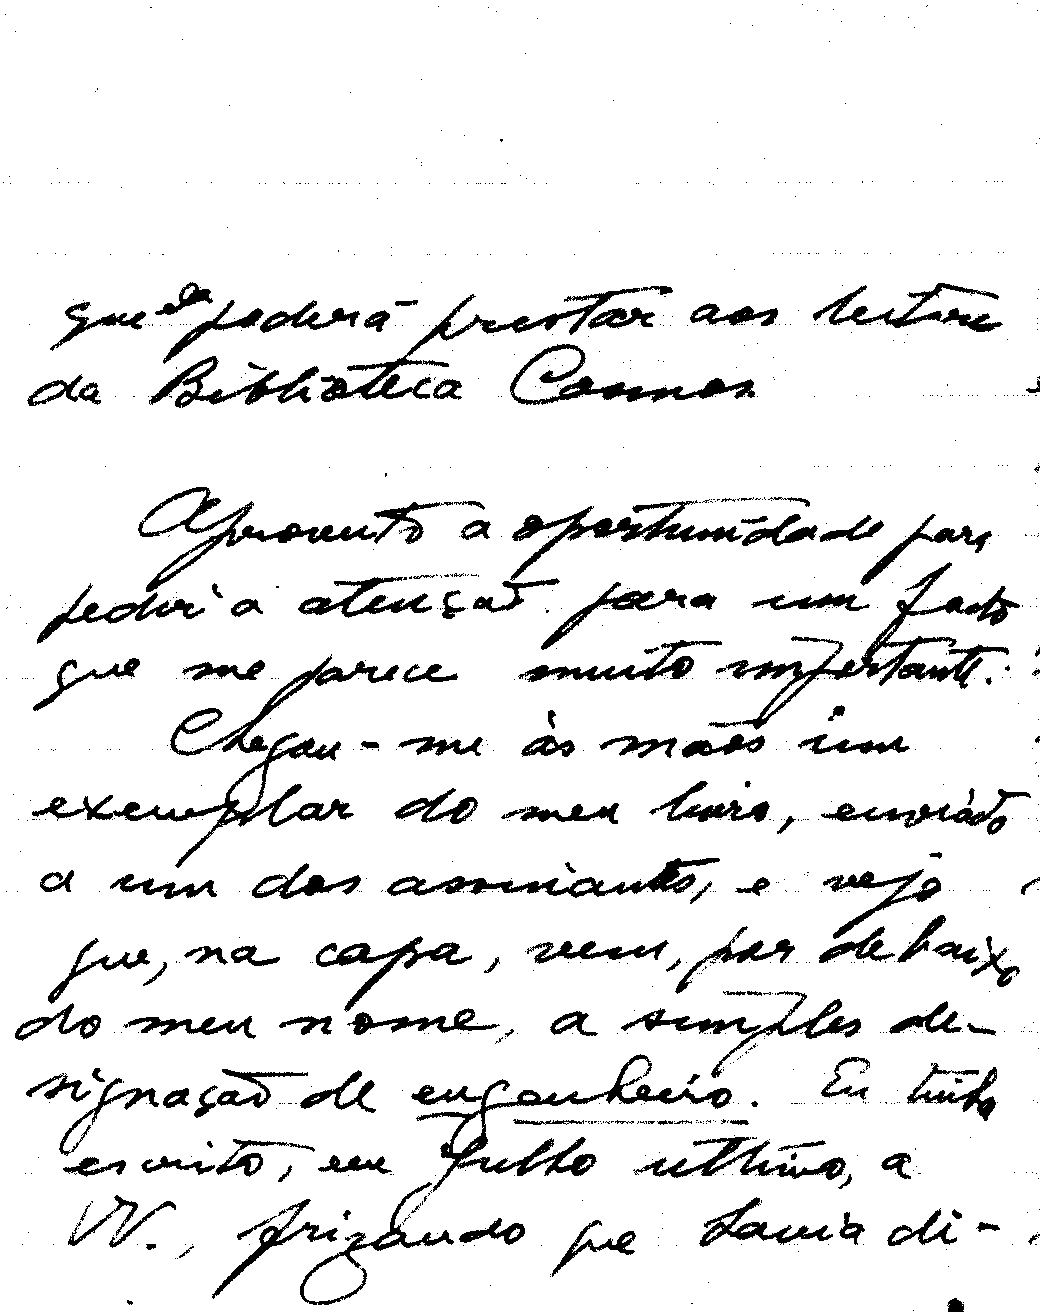 que ela poderá prestar aos leitores
da Biblioteca Cosmos.
Aproveito a oportunidade para
pedir a atenção para um facto
que me parece muito importante.
Chegou-me às mãos um
exemplar do meu livro, enviado
a um dos assinantes, e vejo
que, na capa, vem, por debaixo
do meu nome, a simples de-
signação de engenheiro. Eu tinha
escrito, em Julho ultimo, a
VV., frizando que havia di-